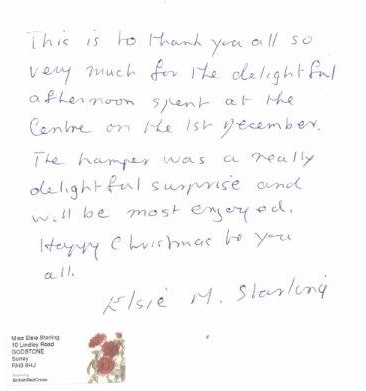 This is to thank you all so
very much for the delightful
afternoon spent at the
Centre on the 1st December.
The hamper was a really
delightful surprise and
will be most enjoyed.
Happy Christmas to you
all.
Elsie M. Starling
Miss Elsie Starling
10 Lindley Road
GODSTONE
Surrey
RH9 8HJ
BritishRedCross